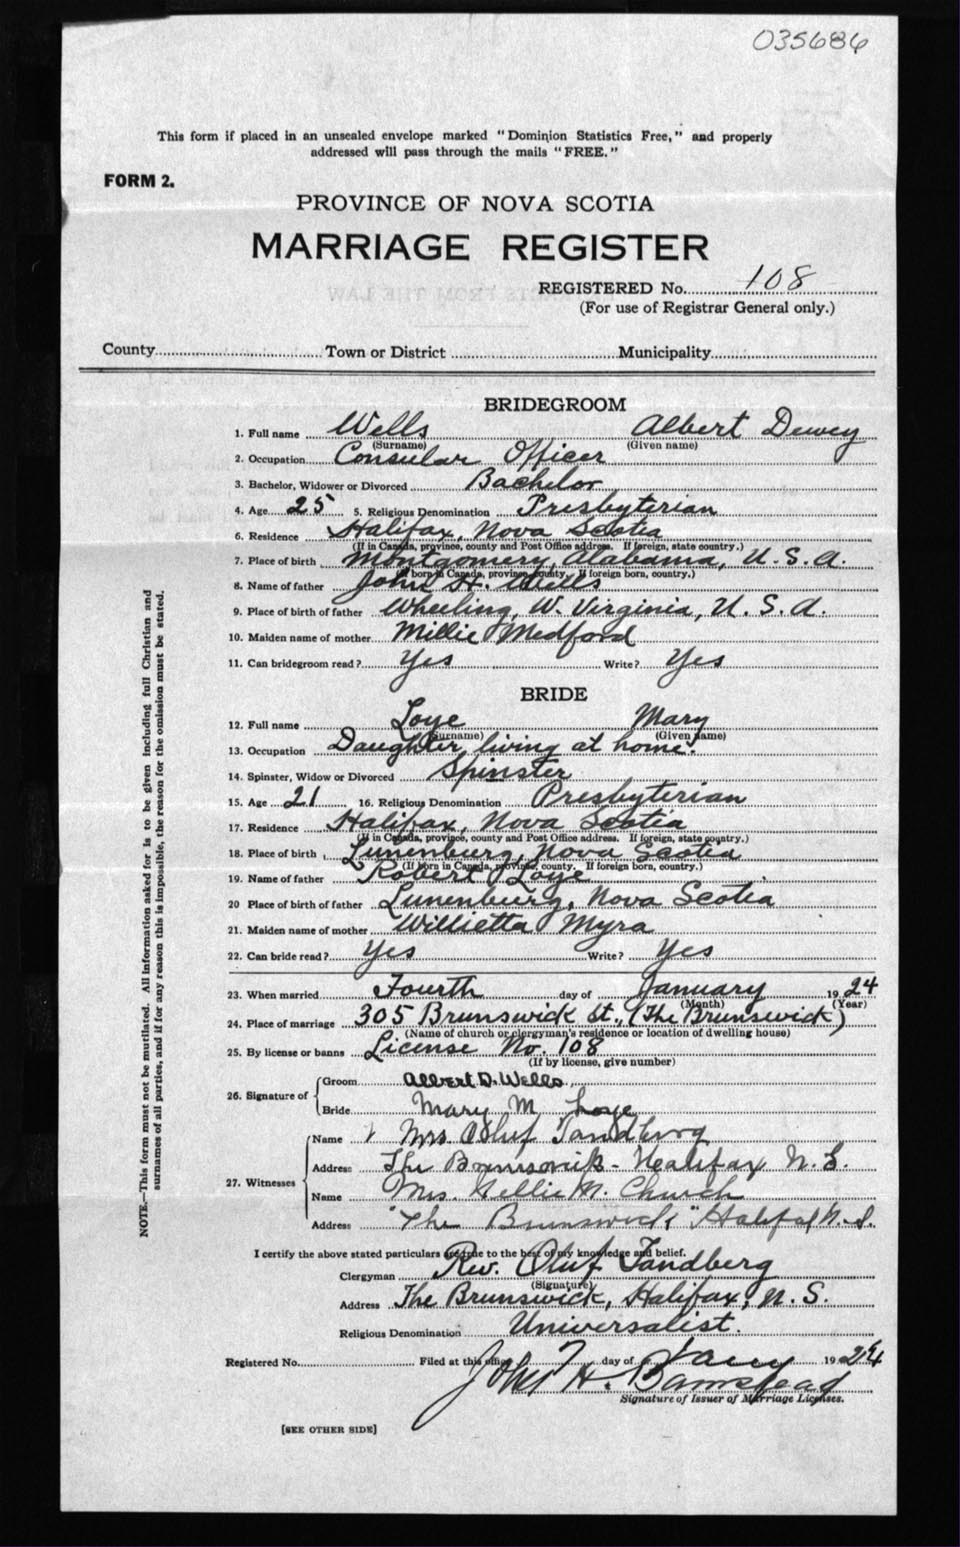 035686
This form if placed in an unsealed envelope marked "Dominion Statistics Free," and properly
addressed will pass through the mails "FREE."
FORM 2.
PROVINCE OF NOVA SCOTIA
MARRIAGE REGISTER
REGISTERED No. 108
(For use of Registrar General only.)
County Town or District Municipality
BRIDEGROOM
1. Full name Wells Albert Dewey
(Surname) (Given name)
2. Occupation Consular Officer
3. Bachelor, Widower or Divorced Bachelor
4. Age 25 5. Religious Denomination Presbyterian
6. Residence Halifax, Nova Scotia
(If in Canada, province, county and Post Office address. If foreign, state country.)
7. Place of birth Montgomery, Alabama, U.S.A.
(If born in Canada, province, county. If foreign born, country.)
8. Name of father John H. Wells
9. Place of birth of father Wheeling, W. Virginia, U.S.A.
10. Maiden name of mother Millie Medford
11. Can bridegroom read? Yes Write? Yes
BRIDE
12. Full name Loye Mary
(Surname) (Given name)
13. Occupation Daughter, living at home.
14. Spinster, Widow or Divorced Spinster
15. Age 21 16. Religious Denomination Presbyterian
17. Residence Halifax, Nova Scotia
(If in Canada, province, county and Post Office address. If foreign, state country.)
18. Place of birth Lunenburg, Nova Scotia
(If born in Canada, province, county. If foreign born, country.)
19. Name of father Robert Loye
20 Place of birth of father Lunenburg, Nova Scotia
21. Maiden name of mother Willietta Myra
22. Can bride read? Yes Write? Yes
23. When married Fourth day of January 1924
(Month) (Year)
24. Place of marriage 305 Brunswick St., (The Brunswick)
(Name of church or clergyman's residence or location of dwelling house)
25. By license or banns License No. 108
(If by license, give number)
26. Signature of Groom Albert D. Wells
Bride Mary M Loye
27. Witnesses Name Mrs. Oluf Tandberg
Address The Brunswick - Halifax N.S.
Name Mrs. Nellie M. Church
Address "The Brunswick" Halifax N.S.
I certify the above stated particulars are true to the best of my knowledge and belief.
Clergyman Rev. Oluf Tandberg
(Signature)
Address The Brunswick, Halifax, N.S.
Religious Denomination Universalist.
Registered No. Filed at this office 7 day of Jany 1924
John H. Barnstead
Signature of Issuer of Marriage Licenses.
[SEE OTHER SIDE]
NOTE.—This form must not be mutilated. All information asked for is to be given including full Christian and
surnames of all parties, and if for any reason this is impossible, the reason for the omission must be stated.